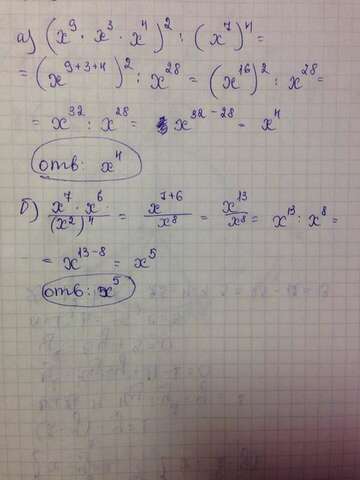 а) (x⁹ · x³ · x⁴)² : (x⁷)⁴ =
= (x⁹⁺³⁺⁴)² : x²⁸ = (x¹⁶)² : x²⁸ =
= x³² : x²⁸ = x³²⁻²⁸ = x⁴
отв: x⁴
б) x⁷ · x⁶ / (x²)⁴ = x⁷⁺⁶ / x⁸ = x¹³ / x⁸ = x¹³ : x⁸ =
= x¹³⁻⁸ = x⁵
отв: x⁵